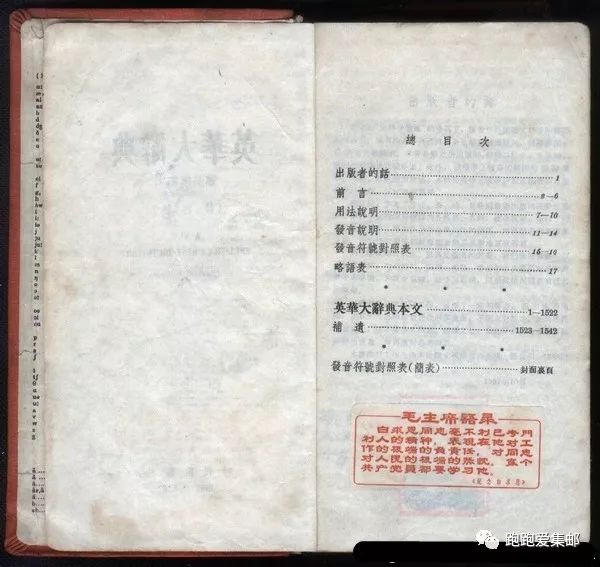 英華大辭典
總目次
出版者的話 1
前言 2-6
用法說明 7-10
發音說明 11-14
發音符號對照表 15-16
略語表 17
英華大辭典本文 1—1522
補遺 1523—1542
發音符號對照表(簡表) 封面裏頁
毛主席語录
白求恩同志毫不利己专門
利人的精神，表現在他对工
作的极端的負責任，对同志
对人民的极端的热忱。每个
共产党員都要学习他。
《紀念白求恩》
跑跑爱集邮